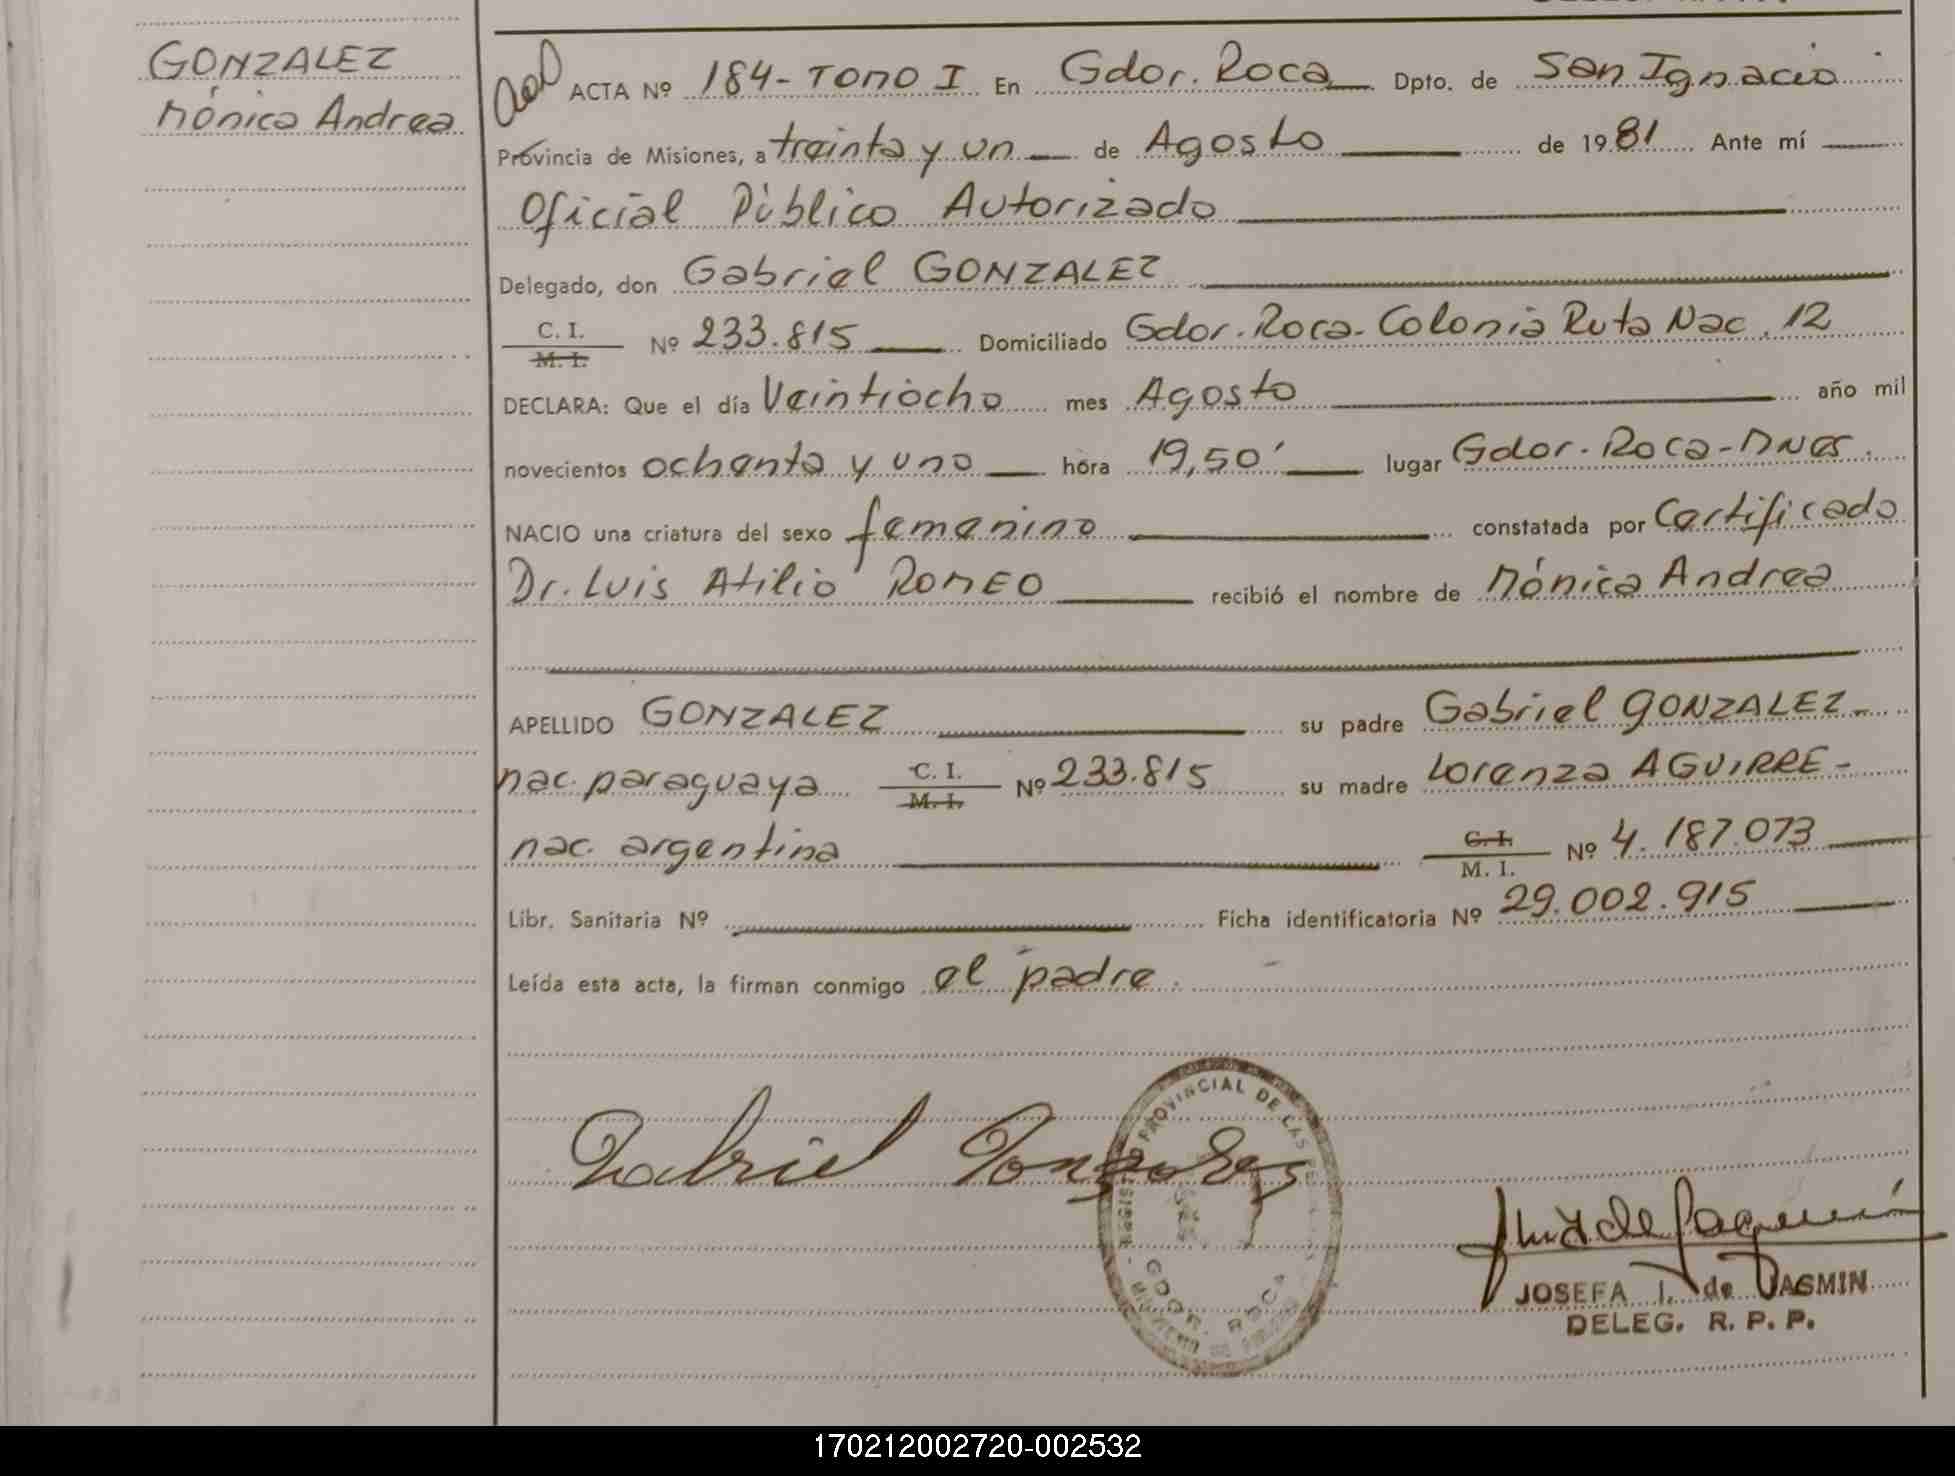 GONZALEZ
Mónica Andrea
ACTA Nº 184- TOMO I En Gdor. Roca Dpto. de San Ignacio
Provincia de Misiones, a treinta y un de Agosto de 1981 Ante mí
Oficial Público Autorizado
Delegado, don Gabriel GONZALEZ
C. I.
M. I. Nº 233.815 Domiciliado Gdor. Roca- Colonia Ruta Nac. 12
DECLARA: Que el día Veintiocho mes Agosto año mil
novecientos ochenta y uno hora 19,50' lugar Gdor. Roca-Mnes.
NACIO una criatura del sexo femenino constatada por Certificado
Dr. Luis Atilio ROMEO recibió el nombre de Mónica Andrea
APELLIDO GONZALEZ su padre Gabriel GONZALEZ-
nac. paraguaya C. I. M. I. Nº 233.815 su madre Lorenza AGUIRRE-
nac. argentina C. I. M. I. Nº 4.187.073
Libr. Sanitaria Nº Ficha identificatoria Nº 29.002.915
Leída esta acta, la firman conmigo el padre.
Gabriel Gonzalez
PROVINCIAL DE LAS
GDOR. ROCA
JOSEFA I. de JASMIN
DELEG. R. P. P.
170212002720-002532